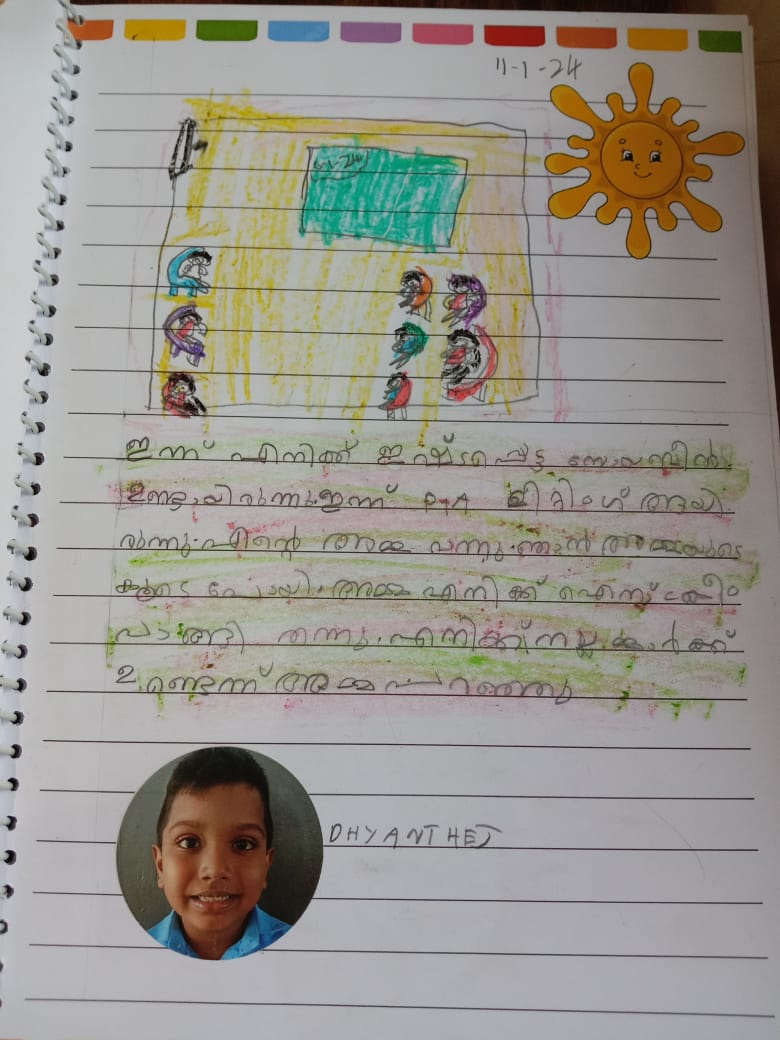 11-1-24
11-1-24
ഇന്ന് എനിക്ക് ഇഷ്ടപ്പെട്ട
ഉണ്ടായിരുന്നു.ഇന്ന് PTA മീറ്റിംഗ് ആയി
രുന്നു.എൻ്റെ അമ്മ വന്നു.ഞാൻ അമ്മയുടെ
കൂടെ പോയി.അമ്മ എനിക്ക് ഐസ്ക്രീം
വാങ്ങി തന്നു.എനിക്ക് നല്ല മാർക്ക്
ഉണ്ടെന്ന് അമ്മ പറഞ്ഞു
DHYANTHEJ